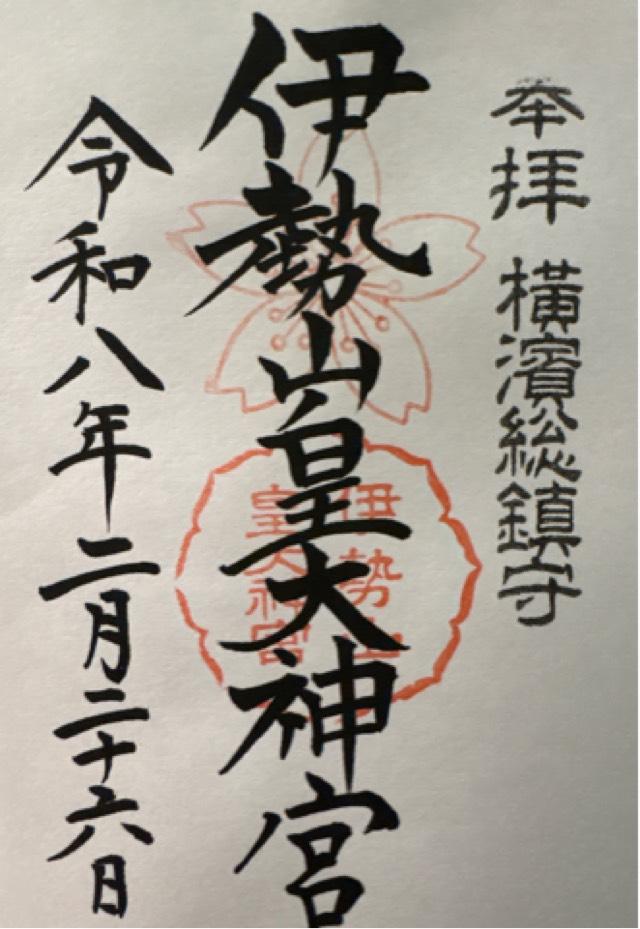 奉拝 横濱総鎮守
伊勢山皇大神宮
伊勢山
皇大神宮
令和八年二月二十六日